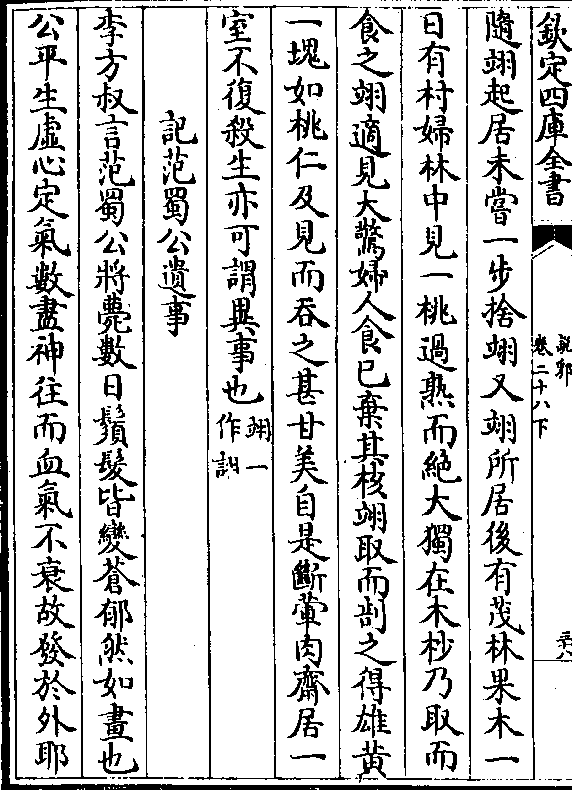 欽定四庫全書
說郛
卷二十八下
隨翊起居未嘗一步捨翊又翊所居後有茂林果木一
日有村婦林中見一桃過熟而絶大獨在木杪乃取而
食之翊適見大驚婦人食已棄其核翊取而剖之得雄黃
一塊如桃仁及見而吞之甚甘美自是斷葷肉齋居一
室不復殺生亦可謂異事也翊一
作詡
記范蜀公遺事
李方叔言范蜀公將薨數日鬚髮皆變蒼郁然如畫也
公平生虛心定氣數盡神往而血氣不衰故發於外耶